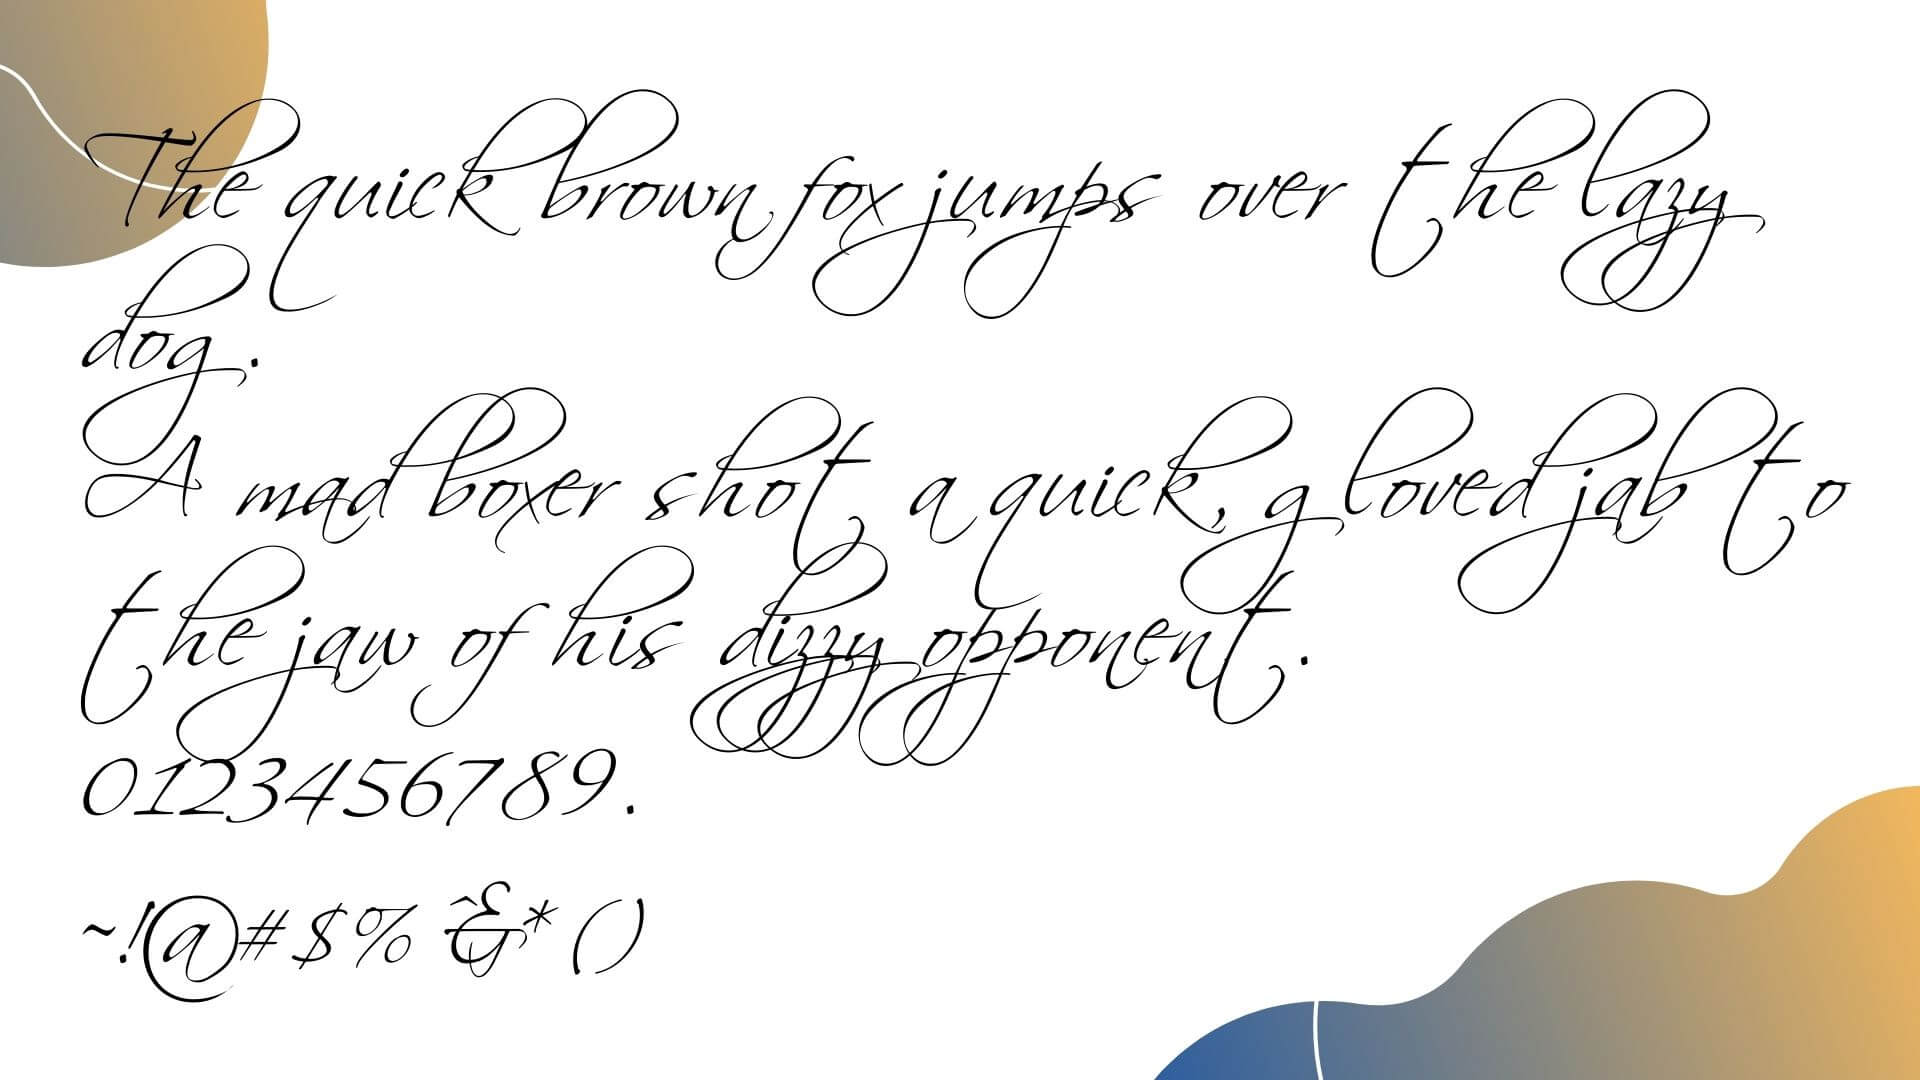 The quick brown fox jumps over the lazy
dog.
A mad boxer shot a quick, gloved jab to
the jaw of his dizzy opponent.
0123456789.
~!@#$%^&*()